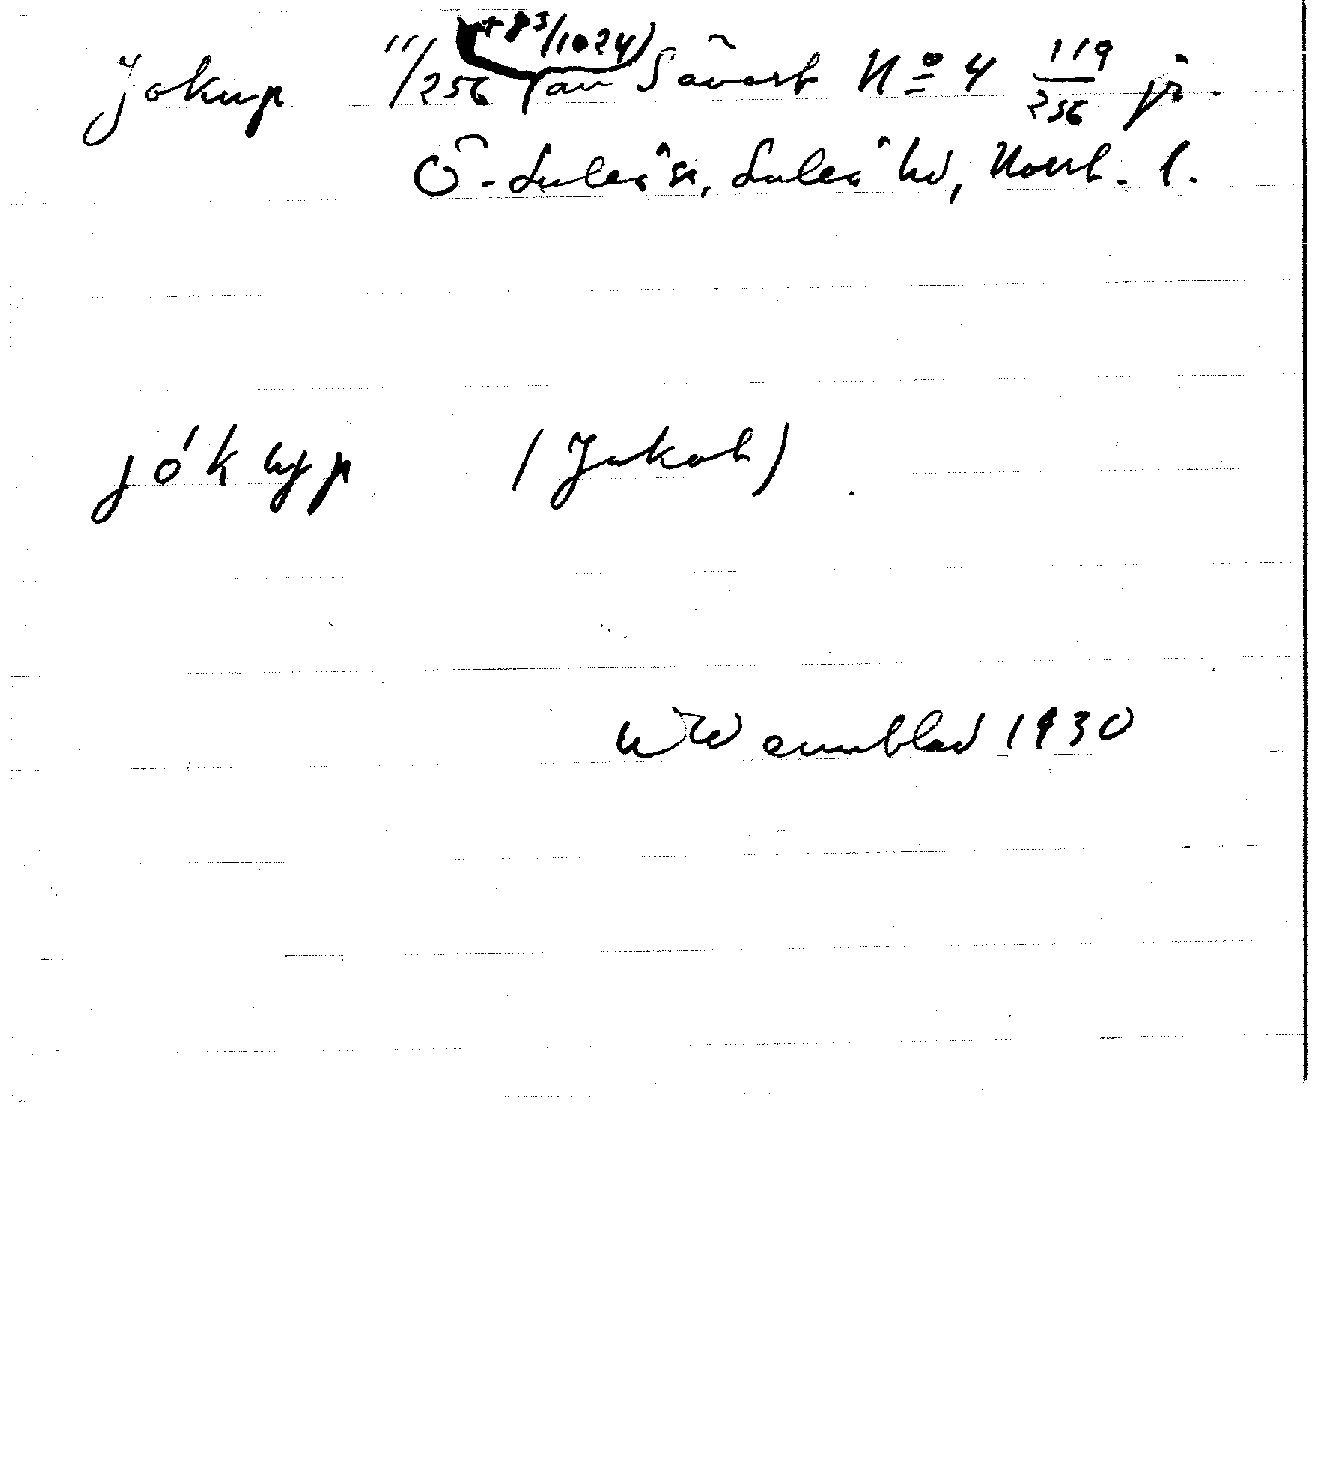 Jokup 11/256 (+83/1024) av Sävast No 4 119/256 jr.
Ö-Luleå sn, Luleå hd, Norrb. l.
jók up (Jakob)
W Wennblad 1930